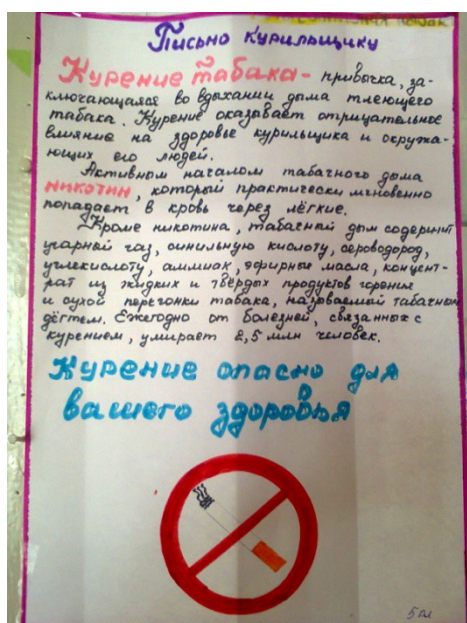 Письмо курильщику
Курение табака - привычка, за-
ключающаяся во вдыхании дыма тлеющего
табака. Курение оказывает отрицательное
влияние на здоровье курильщика и окружа-
ющих его людей.
Активном началом табачного дыма
никотин, который практически мгновенно
попадает в кровь через лёгкие.
Кроме никотина, табачный дым содержит
угарный газ, синильную кислоту, сероводород,
углекислоту, аммиак, эфирные масла, концент-
рат из жидких и твёрдых продуктов горения
и сухой перегонки табака, называемый табачным
дёгтем. Ежегодно от болезней, связанных с
курением, умирает 2,5 млн человек.
Курение опасно для
вашего здоровья